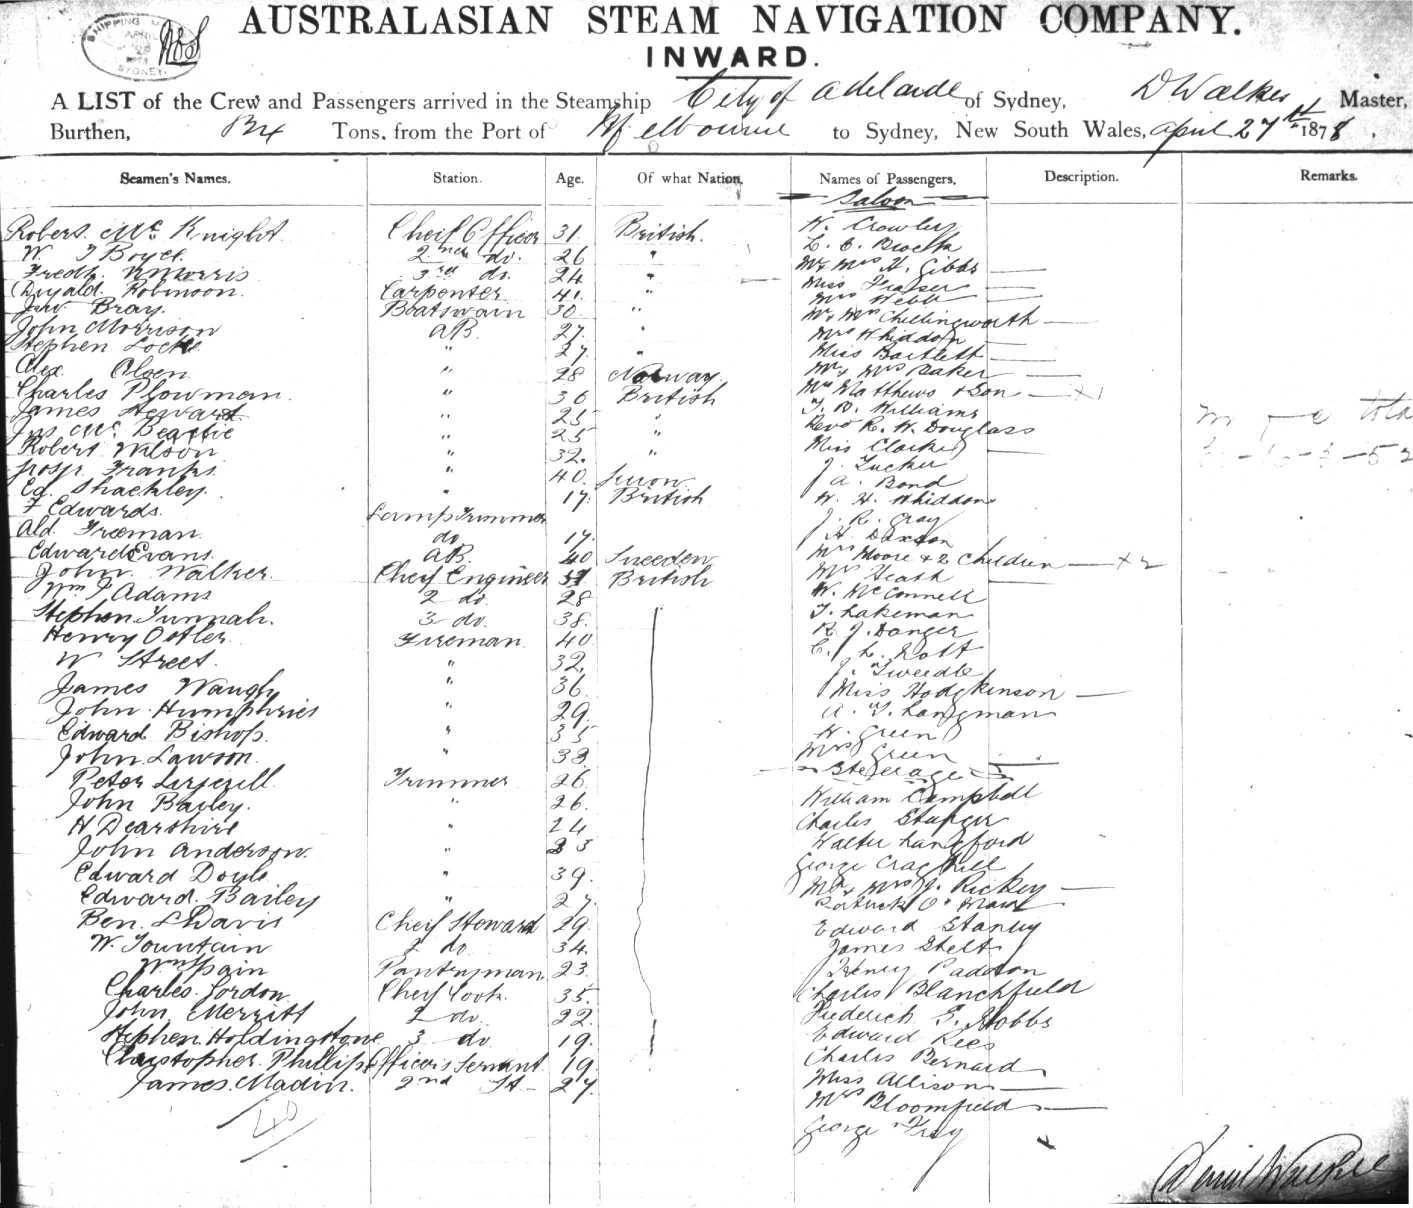 AUSTRALASIAN STEAM NAVIGATION COMPANY.
INWARD.
A LIST of the Crew and Passengers arrived in the Steamship City of Adelaide of Sydney, D Walker Master,
Burthen, Tons, from the Port of Melbourne to Sydney, New South Wales, April 27th 1878.
Seamen's Names. Station. Age. Of what Nation. Names of Passengers. Description. Remarks.
Robert McKnight Cheif Officer 31. British.
W. J Boyce. 2nd do. 26 "
Fredk. N Morris 3rd do. 24 "
Robinson. Carpenter 41. "
Bray. Boatswain 30. "
John Morrison AB. 27. "
Stephen Locke " 27. "
Alex Olsen " 28 Norway
Charles Plowman. " 30 British
James Stewart " 25 "
Jas Mc. Beattie " 25 "
Robert Wilson " 32. "
Franks " 40.
Ed. Shackley. " 17. British
F Edwards. Lamp Trimmer
Ald. Freeman. do 17.
Edward Evans. AB. 40 Sweeden
John Walker. Cheif Engineer British
Wm J Adams 2 do. 28
Stephen Tunnah. 3 do. 38.
Henry Ostler. Fireman. 40
W Street. " 32.
James Waugh " 36.
John Humphries " 29.
Edward Bishop. " 35
John Lawson. " 38.
Peter Trimmer 26.
John Bailey. " 26.
H Dearshire " 24
John Anderson. " 23
Edward Doyle " 39.
Edward Bailey " 27.
Ben. Davis Cheif Steward 29.
W. Fountain 2 do 34.
Wm Spain Pantryman. 23.
Charles Gordon. Cheif Cook. 35.
John Merritt 2 do. 22.
Stephen Holdingstone 3 do 19.
Christopher Phillips Officers Servant 19.
James Madin. 2nd St 27.
40
Saloon
W. Crowley
L. E. Brock
Mr & Mrs H. Gibbs
Miss Fraser
Mrs Webb
Mr & Mrs Chillingworth
Mrs Whiddon
Miss Bartlett
Mr & Mrs Baker
Mrs Matthews & Son x1
T. B. Williams
Revd R. H. Douglass
Miss Clarke
J. Tucker
A. Bond
W. H. Whiddon
J. R. Gray
H. Daxson
Mrs Moore & 2 Children x 2
Mrs Heath
W. McConnell
T. Lakeman
R. J. Danger
C. L. Scott
J. Tweedle
Miss Hodgkinson
A. T. Langman
H. Green
Mrs Green
Steerage
William Campbell
Charles Stanger
Walter Langford
George Craghill
Mr & Mrs J. Rickey
Edward Stanley
James Stelt
Henry Paddon
Charles Blanchfield
Frederick G. Hobbs
Edward Rees
Charles Bernard
Miss Allison
Mrs Bloomfield
George Fray
total